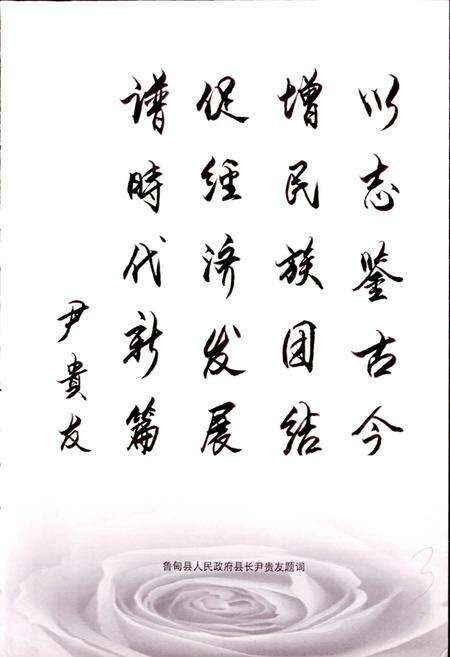 以志鉴古今
增民族团结
促经济发展
谱時代新篇
尹貴友
鲁甸县人民政府县长尹贵友题词
3